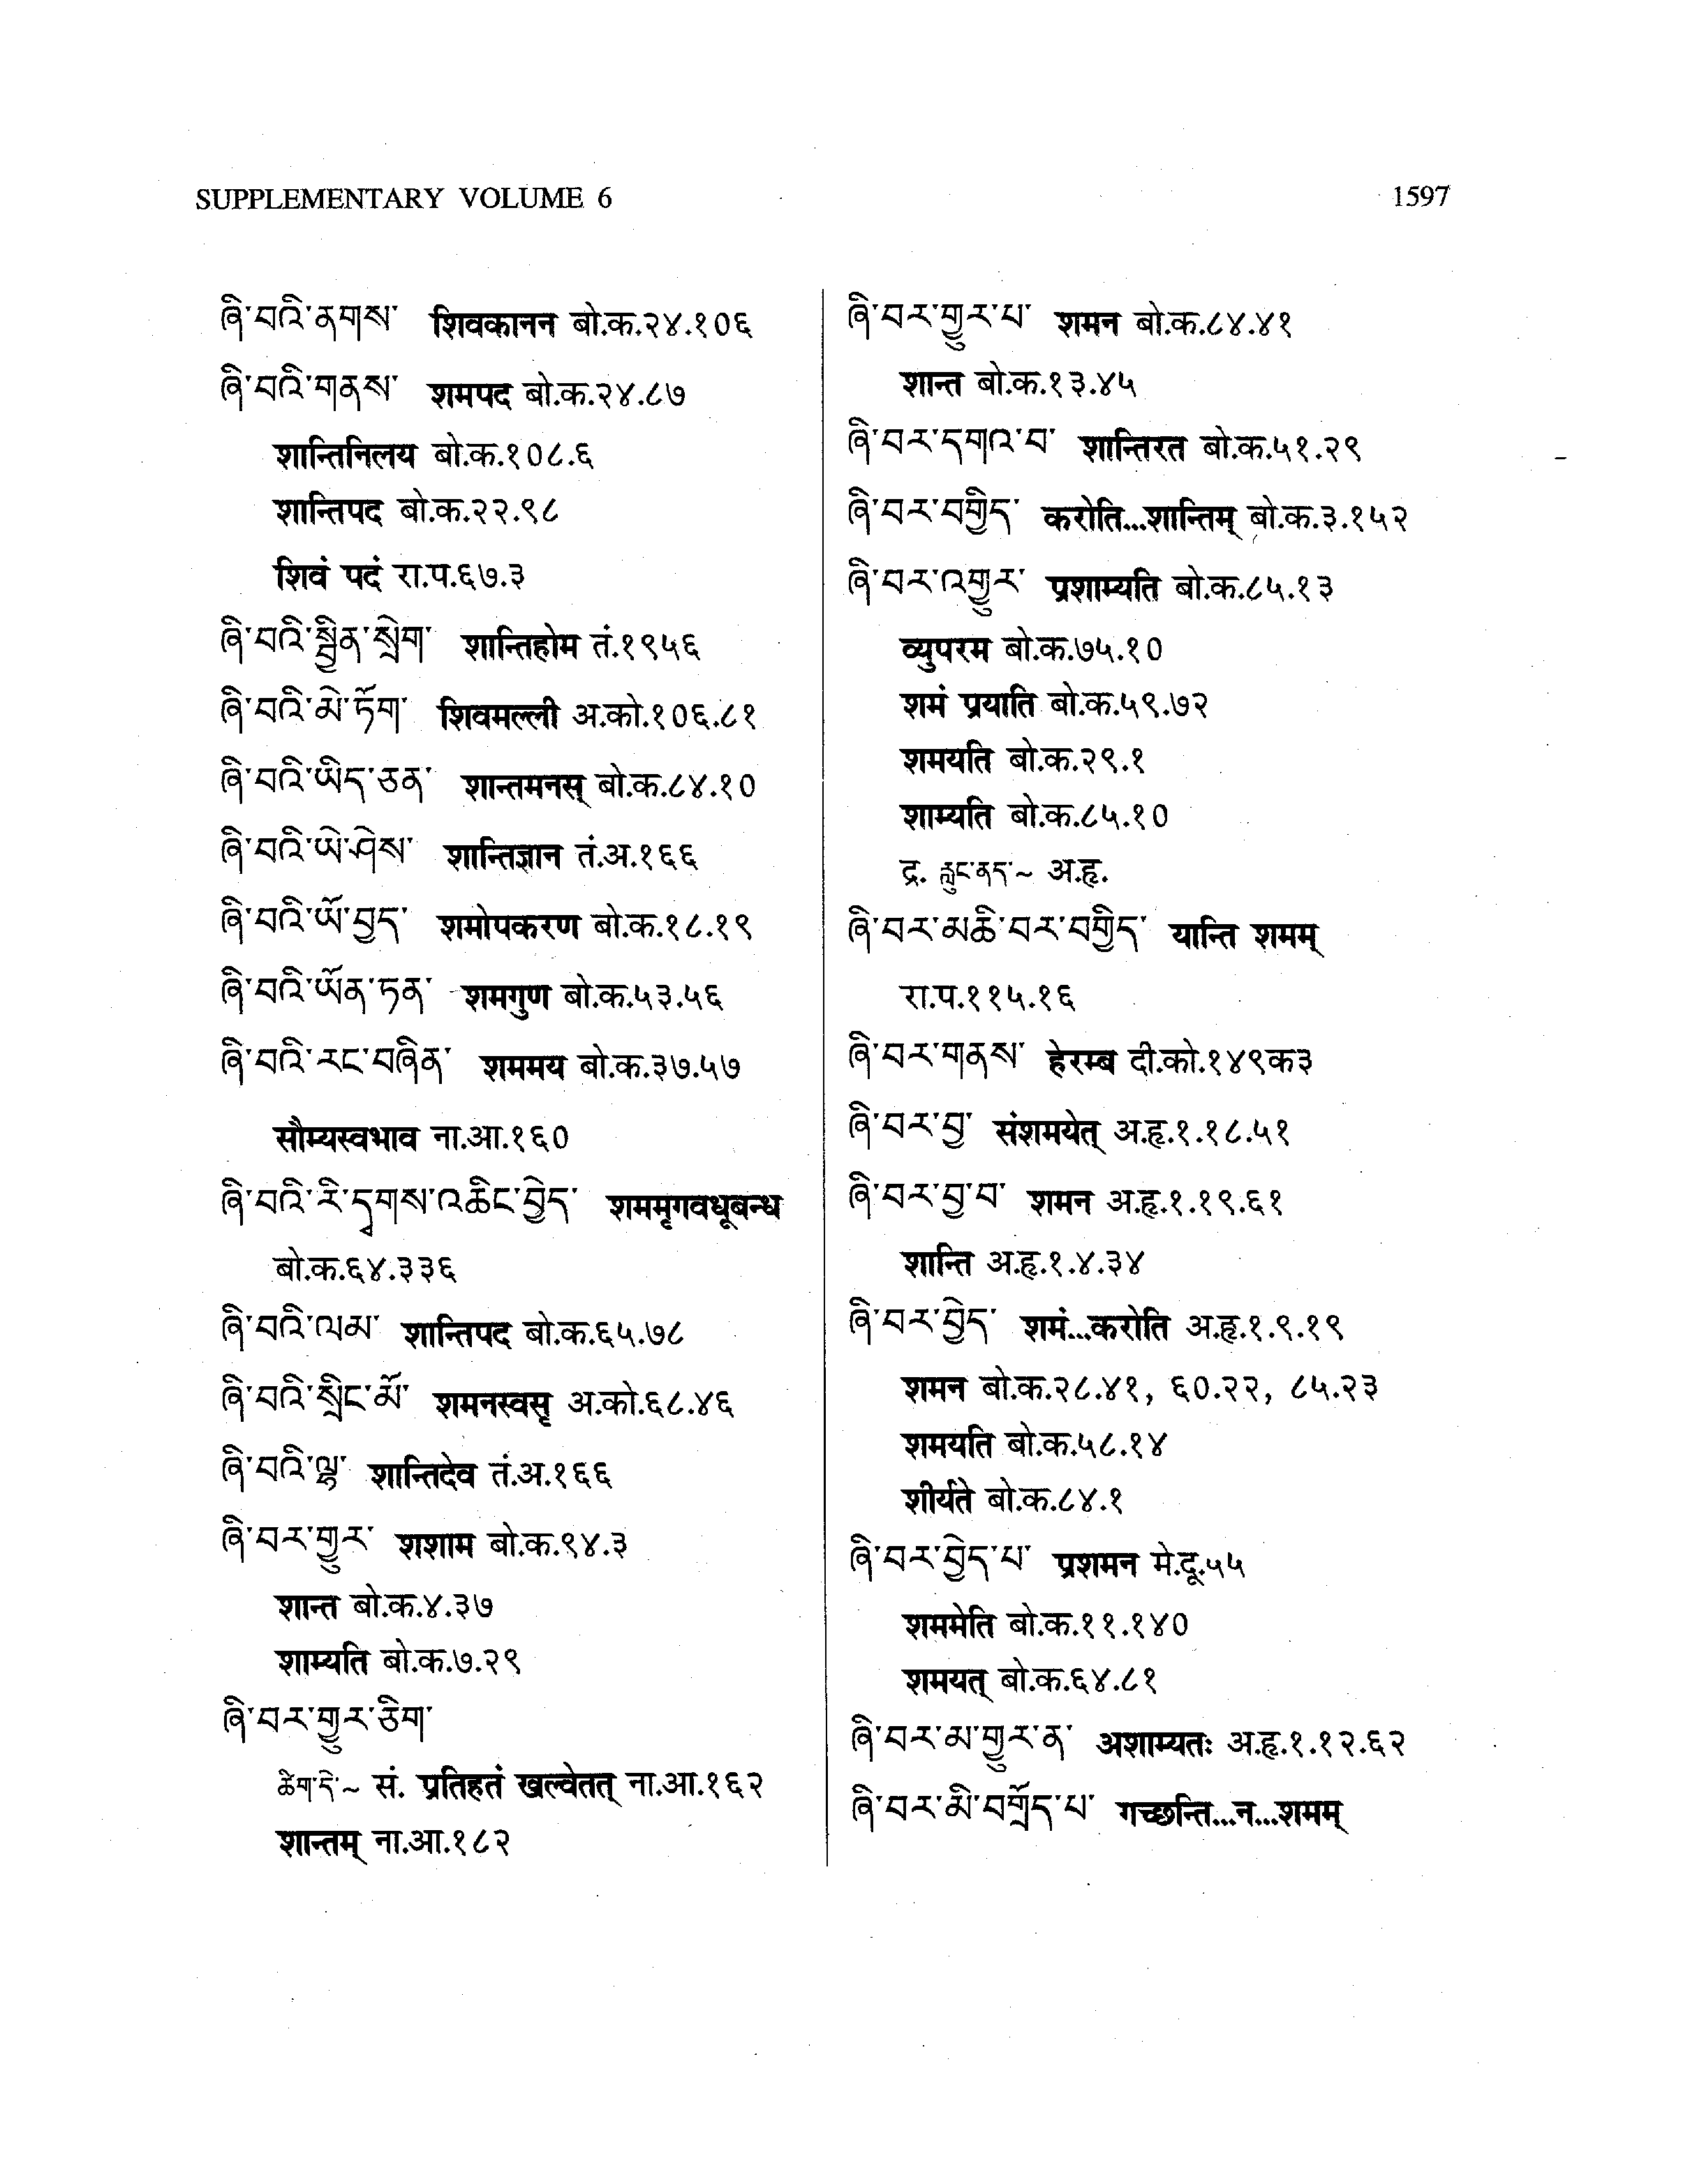 SUPPLEMENTARY VOLUME 6 1597
ཞི་བའི་ནགས་ शिवकानन बो.क.२४.१०६
ཞི་བའི་གནས་ शमपद बो.क.२४.८७
शान्तिनिलय बो.क.१०८.६
शान्तिपद बो.क.२२.९८
शिवं पदं रा.प.६७.३
ཞི་བའི་སྦྱིན་སྲེག་ शान्तिहोम तं.१९५६
ཞི་བའི་མེ་ཏོག་ शिवमल्ली अ.को.१०६.८१
ཞི་བའི་ཡིད་ཅན་ शान्तमनस् बो.क.८४.१०
ཞི་བའི་ཡེ་ཤེས་ शान्तिज्ञान तं.अ.१६६
ཞི་བའི་ཡོ་བྱད་ शमोपकरण बो.क.१८.१९
ཞི་བའི་ཡོན་ཏན་ शमगुण बो.क.५३.५६
ཞི་བའི་རང་བཞིན་ शममय बो.क.३७.५७
सौम्यस्वभाव ना.आ.१६०
ཞི་བའི་རི་དྭགས་འཆིང་བྱེད་ शममृगवधूबन्ध
बो.क.६४.३३६
ཞི་བའི་ལམ་ शान्तिपद बो.क.६५.७८
ཞི་བའི་སྲིང་མོ་ शमनस्वसृ अ.को.६८.४६
ཞི་བའི་ལྷ་ शान्तिदेव तं.अ.१६६
ཞི་བར་གྱུར་ शशाम बो.क.९४.३
शान्त बो.क.४.३७
शाम्यति बो.क.७.२९
ཞི་བར་གྱུར་ཅིག་
ཚིག་དེ་~ सं. प्रतिहतं खल्वेतत् ना.आ.१६२
शान्तम् ना.आ.१८२
ཞི་བར་གྱུར་པ་ शमन बो.क.८४.४१
शान्त बो.क.१३.४५
ཞི་བར་དགའ་བ་ शान्तिरत बो.क.५१.२९
ཞི་བར་བགྱིད་ करोति...शान्तिम् बो.क.३.१५२
ཞི་བར་འགྱུར་ प्रशाम्यति बो.क.८५.१३
व्युपरम बो.क.७५.१०
शमं प्रयाति बो.क.५९.७२
शमयति बो.क.२९.१
शाम्यति बो.क.८५.१०
द्र. རླུང་ནད་~ अ.हृ.
ཞི་བར་མཆི་བར་བགྱིད་ यान्ति शमम्
रा.प.११५.१६
ཞི་བར་གནས་ हेरम्ब दी.को.१४९क३
ཞི་བར་བྱ་ संशमयेत् अ.हृ.१.१८.५१
ཞི་བར་བྱ་བ་ शमन अ.हृ.१.१९.६१
शान्ति अ.हृ.१.४.३४
ཞི་བར་བྱེད་ शमं...करोति अ.हृ.१.९.१९
शमन बो.क.२८.४१, ६०.२२, ८५.२३
शमयति बो.क.५८.१४
शीर्यते बो.क.८४.१
ཞི་བར་བྱེད་པ་ प्रशमन मे.दू.५५
शममेति बो.क.११.१४०
शमयत् बो.क.६४.८१
ཞི་བར་མ་གྱུར་ན་ अशाम्यतः अ.हृ.१.१२.६२
ཞི་བར་མི་བགྲོད་པ་ गच्छन्ति...न...शमम्